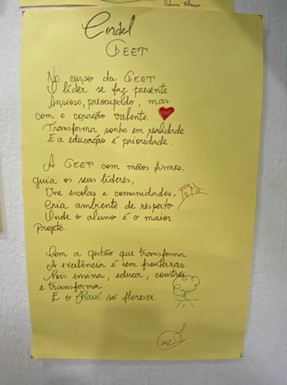 Cordel
CEET
No curso da CEET
O líder se faz presente
Ansioso, preocupado, mas
com o coração valente.
Transforma sonho em realidade
E a educação é prioridade.
A CEET com mãos firmes,
guia os seus líderes,
Une escolas e comunidades,
Cria ambiente de respeito
Onde o aluno é o maior
Projeto.
Com a gestão que transforma
A excelência é sem fronteiras.
Nois ensina, educa, constroi
e transforma
E o Piauí só floresce.